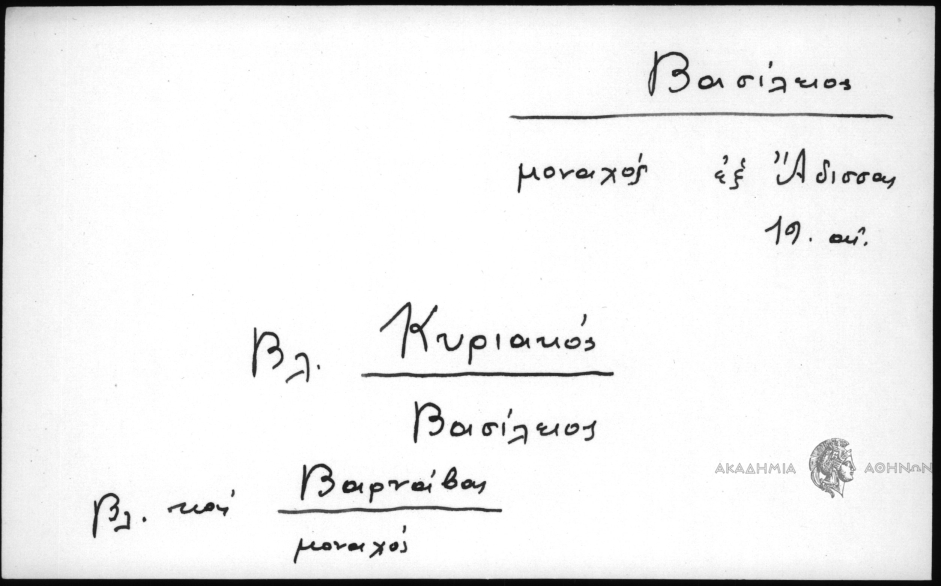 Βασίλειος
μοναχός ἐξ Ἄδισσας
19. αἰ.
Βλ. Κυριακός
Βασίλειος
Βλ. καί Βαρνάβας
μοναχός
ΑΚΑΔΗΜΙΑ ΑΘΗΝΩΝ